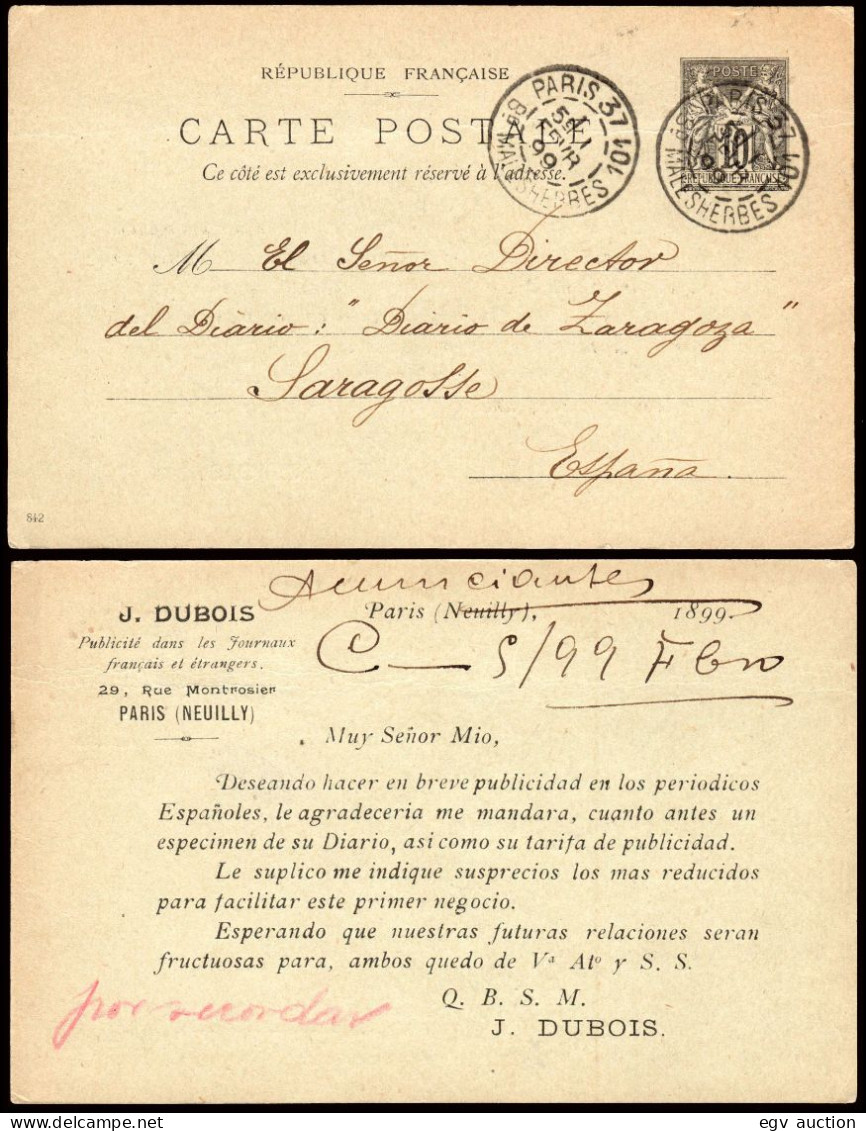 RÉPUBLIQUE FRANÇAISE
CARTE POSTALE
Ce côté est exclusivement réservé à l'adresse.
PARIS 37 101
5E / 1
FEVR
99
Bd MALESHERBES
POSTE
10
REPUBLIQUE FRANÇAISE
PARIS 37 101
Bd MALESHERBES
M El Señor Director
del Diario: "Diario de Zaragoza"
Saragosse
España.
842
Anunciantes
J. DUBOIS
Paris (Neuilly), 1899.
Publicité dans les Journaux
français et étrangers.
C — 5/99 Fbro
29, Rue Montrosier
PARIS (NEUILLY)
Muy Señor Mio,
Deseando hacer en breve publicidad en los periodicos
Españoles, le agradeceria me mandara, cuanto antes un
especimen de su Diario, asi como su tarifa de publicidad.
Le suplico me indique susprecios los mas reducidos
para facilitar este primer negocio.
Esperando que nuestras futuras relaciones seran
fructuosas para, ambos quedo de Va Ato y S. S.
Q. B. S. M.
J. DUBOIS.
por recordar
egv auction